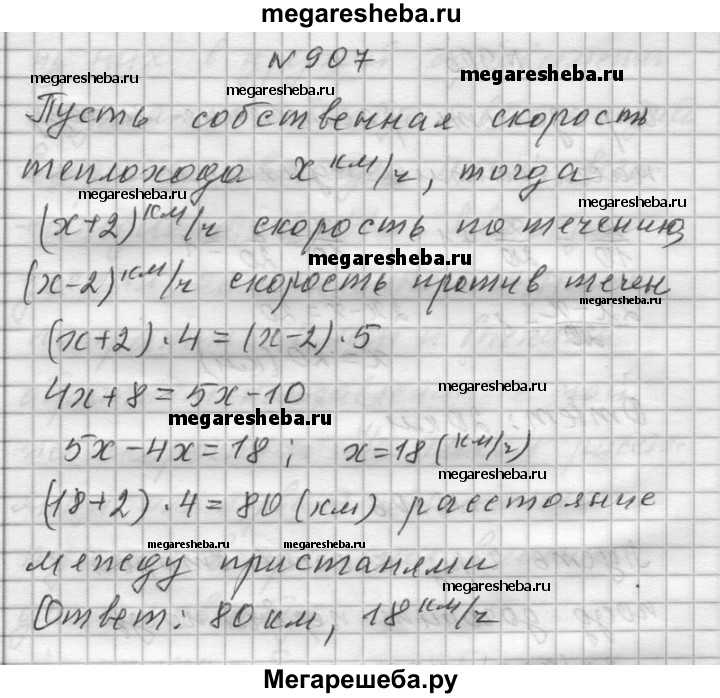 megaresheba.ru
N 907
megaresheba.ru megaresheba.ru megaresheba.ru
Пусть собственная скорость
теплохода x км/ч, тогда
megaresheba.ru megaresheba.ru
(x+2) км/ч скорость по течению,
megaresheba.ru
(x-2) км/ч скорость против течен
megaresheba.ru
(x+2)·4=(x-2)·5
4x+8=5x-10
megaresheba.ru
megaresheba.ru megaresheba.ru
5x-4x=18; x=18 (км/ч)
megaresheba.ru
(18+2)·4=80 (км) расстояние
megaresheba.ru megaresheba.ru
между пристанями
megaresheba.ru
Ответ: 80 км, 18 км/ч
Мегарешеба.ру